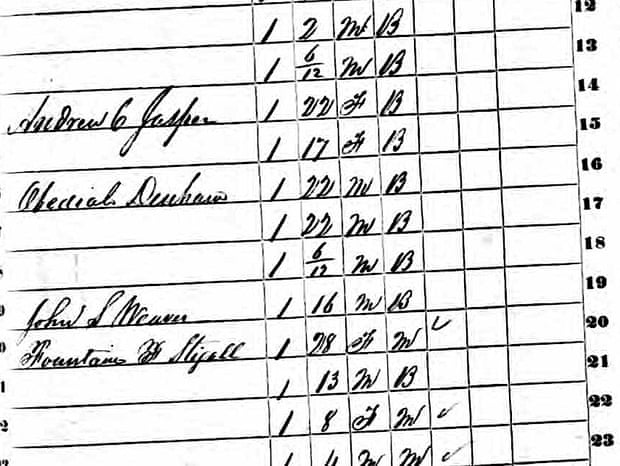 1 2 M B 12
1 6/12 M B 13
Andrew C Jasper 1 22 F B 14
1 17 F B 15
Obediah Denham 1 22 M B 16
1 22 M B 17
1 6/12 M B 18
John S Weaver 1 16 M B 19
Fountain F Stigall 1 28 F M ✓ 20
1 13 M B 21
1 8 F M ✓ 22
1 4 M M ✓ 23